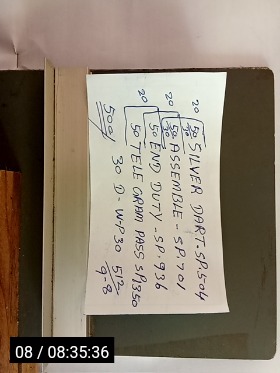 20 50 SILVER DART.SP.504
20 50 ASSEMBLE - SP.701
50 END DUTY - SP.936
20 50 TELE GRAM PASS SP.1350
500 30 D - WP30 512
9-8
08 / 08:35:36